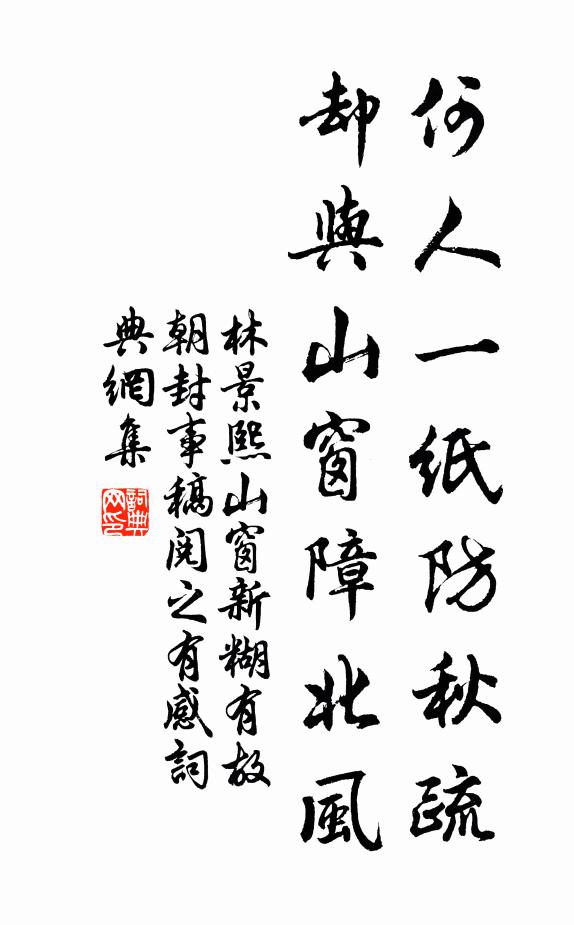 何人一紙防秋疏
却與山窗障北風
林景熙山窗新糊有故
朝封事稿閱之有感詞
典網集
詞典網印